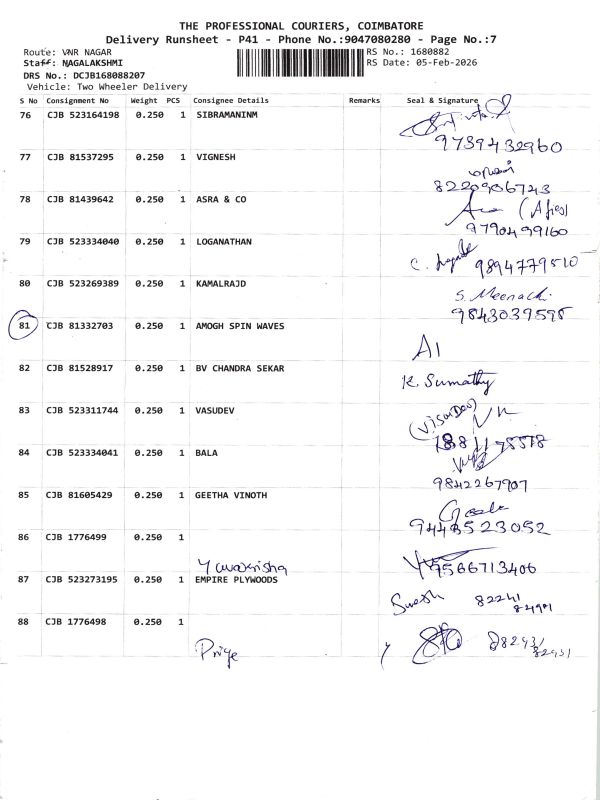 THE PROFESSIONAL COURIERS, COIMBATORE
Delivery Runsheet - P41 - Phone No.:9047080280 - Page No.:7
Route: VNR NAGAR
Staff: NAGALAKSHMI
DRS No.: DCJB168088207
Vehicle: Two Wheeler Delivery
RS No.: 1680882
RS Date: 05-Feb-2026
S No Consignment No Weight PCS Consignee Details Remarks Seal & Signature
76 CJB 523164198 0.250 1 SIBRAMANINM
9739432960
77 CJB 81537295 0.250 1 VIGNESH
8220906743
78 CJB 81439642 0.250 1 ASRA & CO
9790499160
79 CJB 523334040 0.250 1 LOGANATHAN
9894779510
80 CJB 523269389 0.250 1 KAMALRAJD
S. Meenachi
9843039598
81 CJB 81332703 0.250 1 AMOGH SPIN WAVES
A1
82 CJB 81528917 0.250 1 BV CHANDRA SEKAR
K. Sumathy
83 CJB 523311744 0.250 1 VASUDEV
84 CJB 523334041 0.250 1 BALA
9842267907
85 CJB 81605429 0.250 1 GEETHA VINOTH
9443523052
86 CJB 1776499 0.250 1
Yuvakrisha 9566713406
87 CJB 523273195 0.250 1 EMPIRE PLYWOODS
Suresh 82241
88 CJB 1776498 0.250 1
Priye